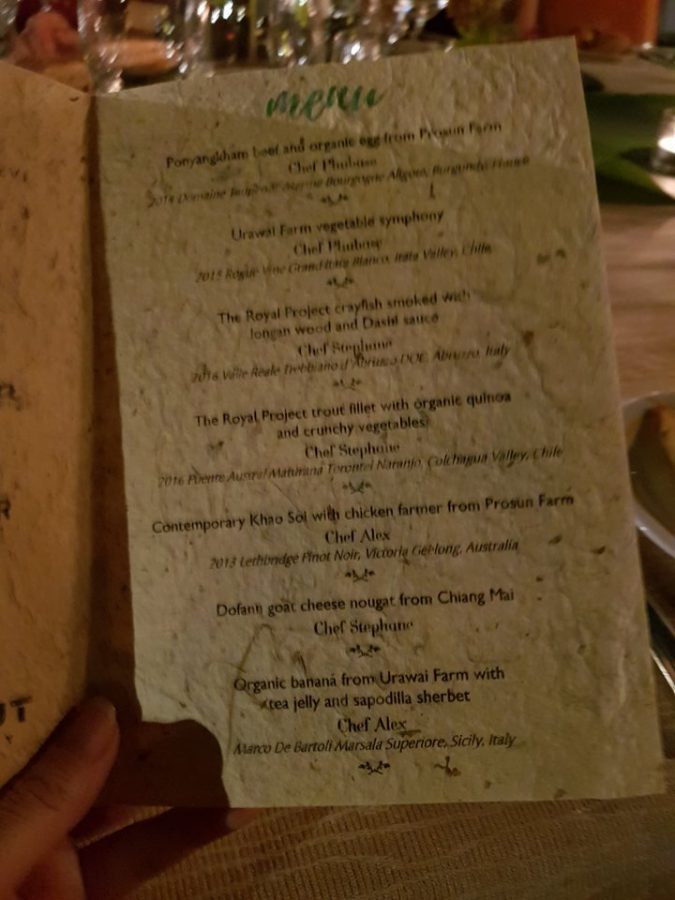 menu
Ponyangkham beef and organic egg from Prosun Farm
Chef Phubase
2014 Domaine Bourgogne Aligoté, Burgundy, France
Urawai Farm vegetable symphony
Chef Phubase
2015 Rogue Vine Grand Itata Blanco, Itata Valley, Chile
The Royal Project crayfish smoked with
longan wood and Dashi sauce
Chef Stephane
2016 Valle Reale Trebbiano d'Abruzzo DOC, Abruzzo, Italy
The Royal Project trout fillet with organic quinoa
and crunchy vegetables
Chef Stephane
2016 Puente Austral Maturana Torontel Naranjo, Colchagua Valley, Chile
Contemporary Khao Soi with chicken farmer from Prosun Farm
Chef Alex
2013 Lethbridge Pinot Noir, Victoria Geelong, Australia
Dofann goat cheese nougat from Chiang Mai
Chef Stephane
Organic banana from Urawai Farm with
tea jelly and sapodilla sherbet
Chef Alex
Marco De Bartoli Marsala Superiore, Sicily, Italy